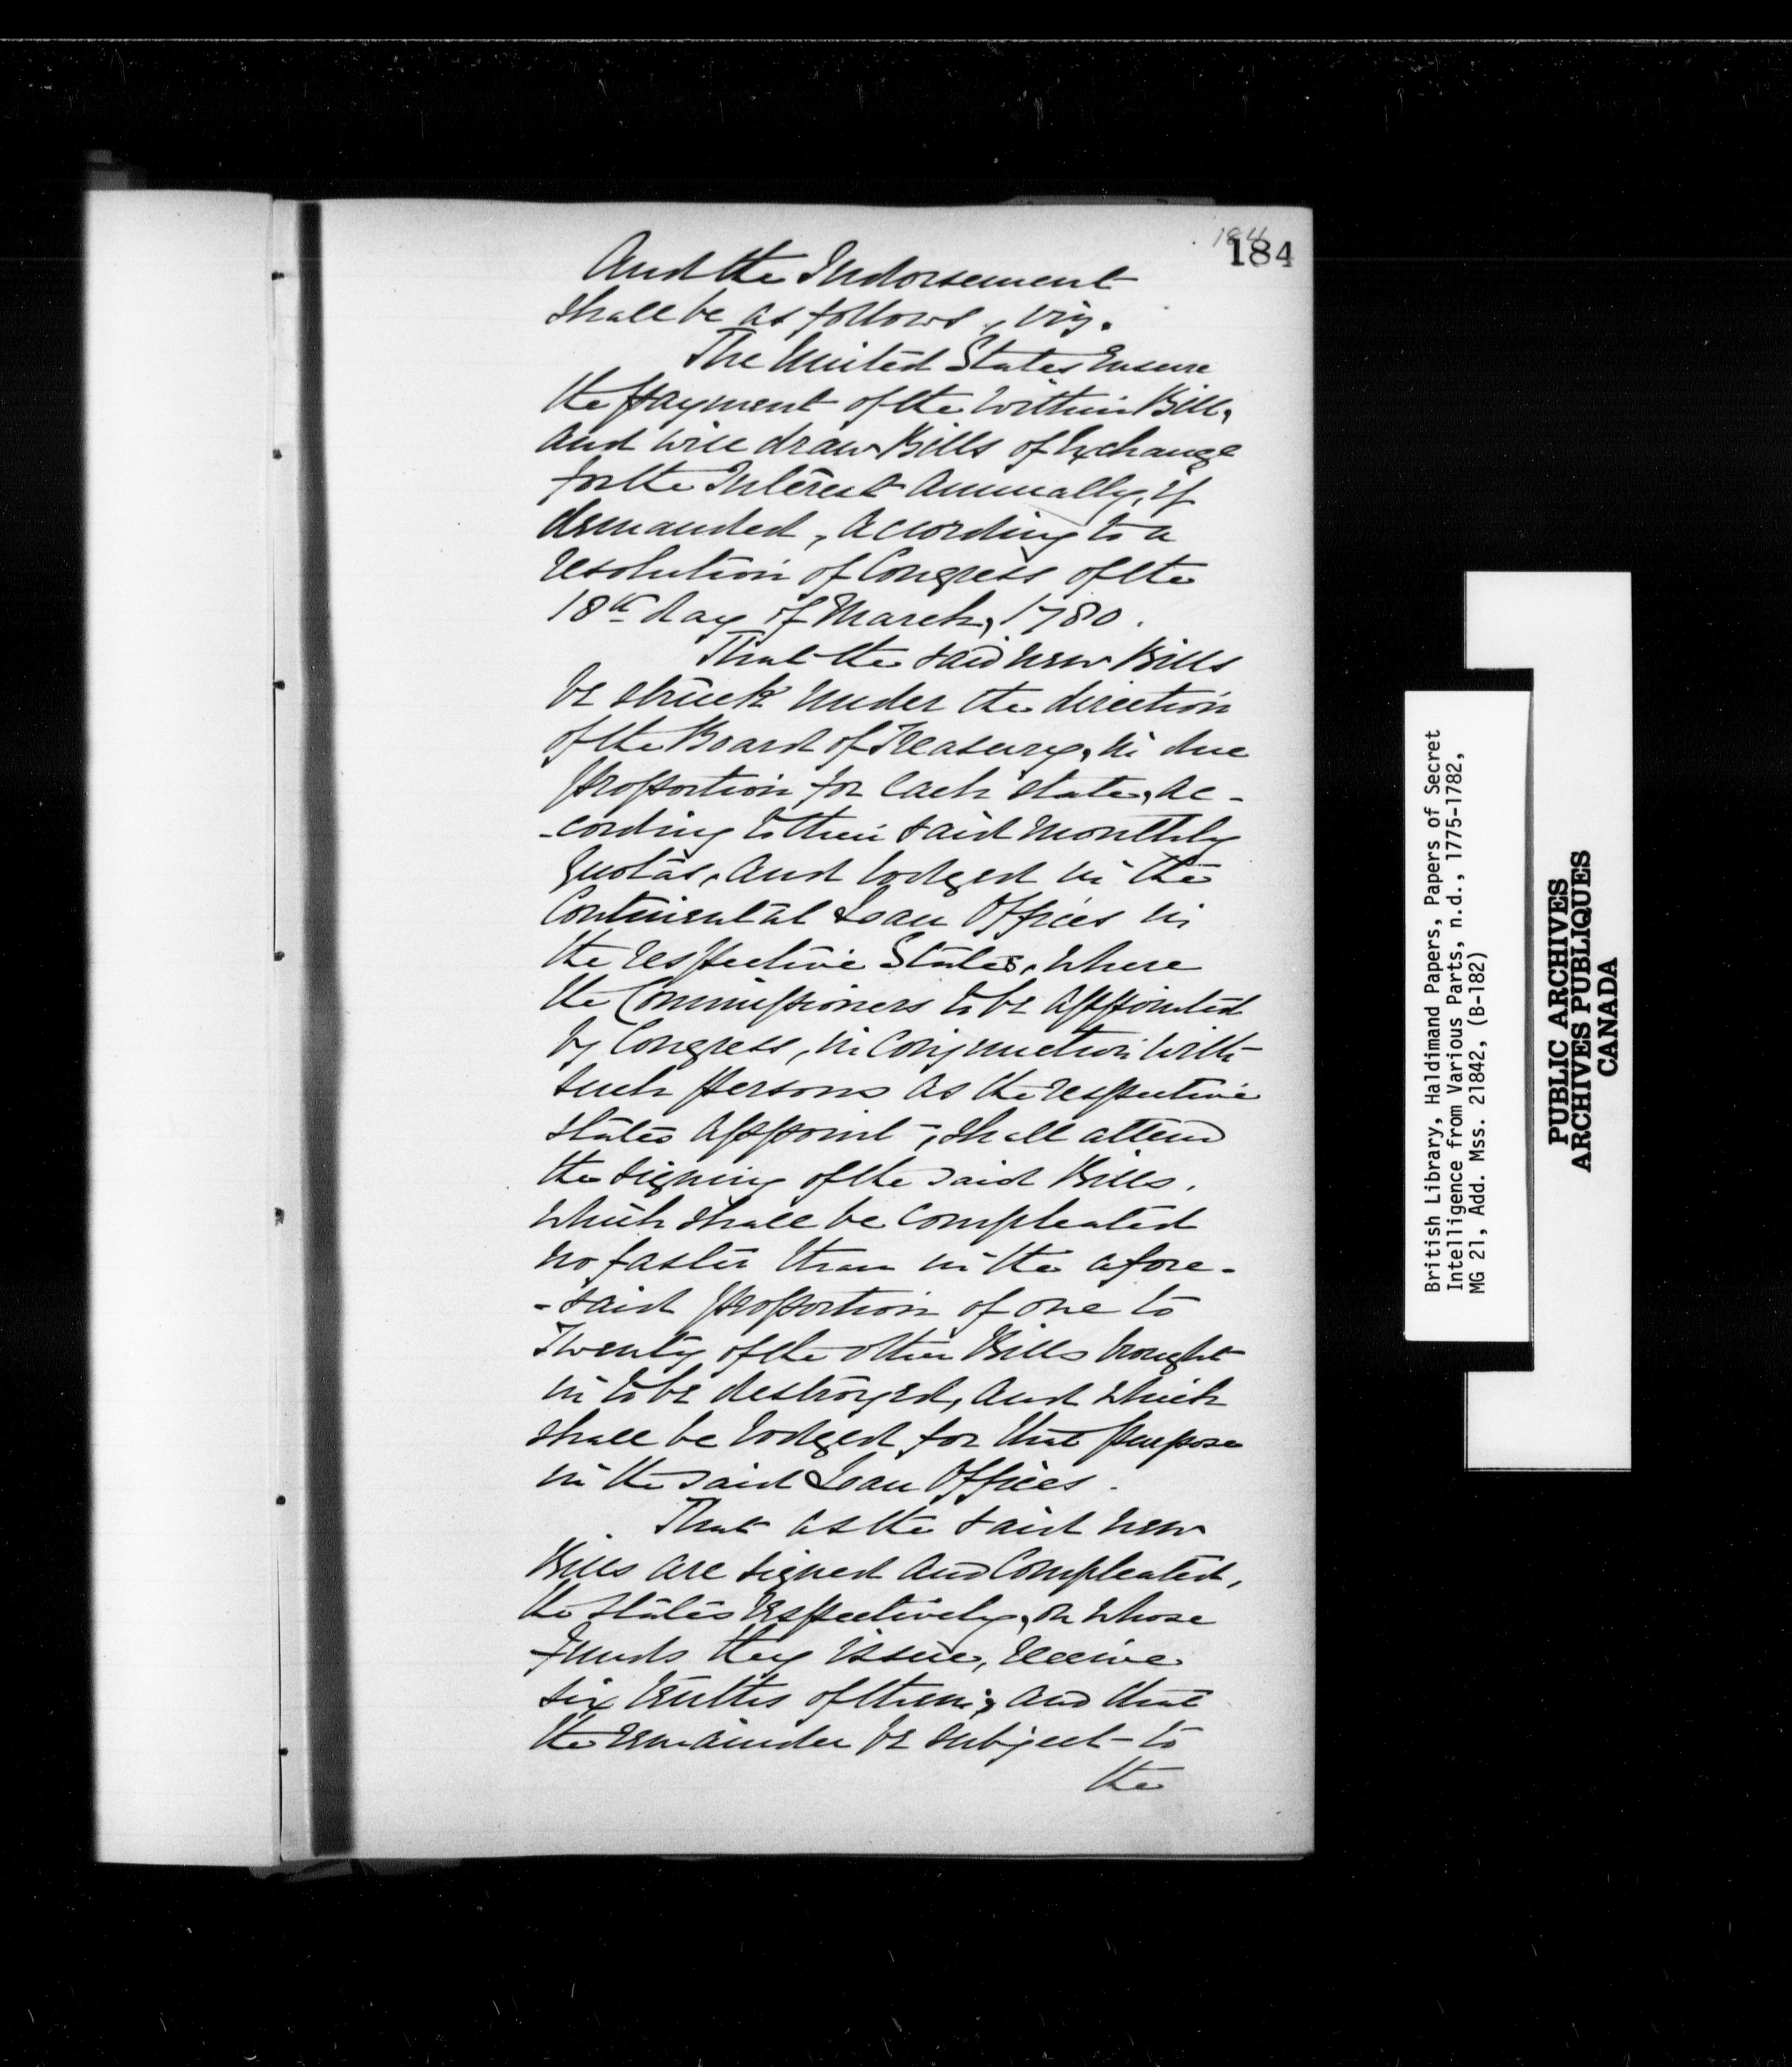 184
184
And the Indorsement
shall be as follows, viz.
The United States Ensure
the payment of the within Bill,
and will draw Bills of Exchange
for the Interest Annually, if
demanded, according to a
resolution of Congress of the
18th day of March, 1780.
That the said new Bills
be struck under the direction
of the Board of Treasury, in due
proportion for each state, ac-
-cording to their said monthly
quotas, and lodged in the
Continental Loan Offices in
the respective States, where
the Commissioners to be appointed
by Congress, in conjunction with
such persons as the respective
states appoint, shall attend
the signing of the said Bills,
which shall be compleated
no faster than in the afore-
-said proportion of one to
Twenty of the other Bills brought
in to be destroyed, and which
shall be lodged for that purpose
in the said Loan Offices.
That as the said new
Bills are signed and Compleated,
the states respectively, on whose
funds they issue, receive
six tenths of them; and that
the remainder be subject to
the
British Library, Haldimand Papers, Papers of Secret
Intelligence from Various Parts, n.d., 1775-1782,
MG 21, Add. Mss. 21842, (B-182)
PUBLIC ARCHIVES
ARCHIVES PUBLIQUES
CANADA